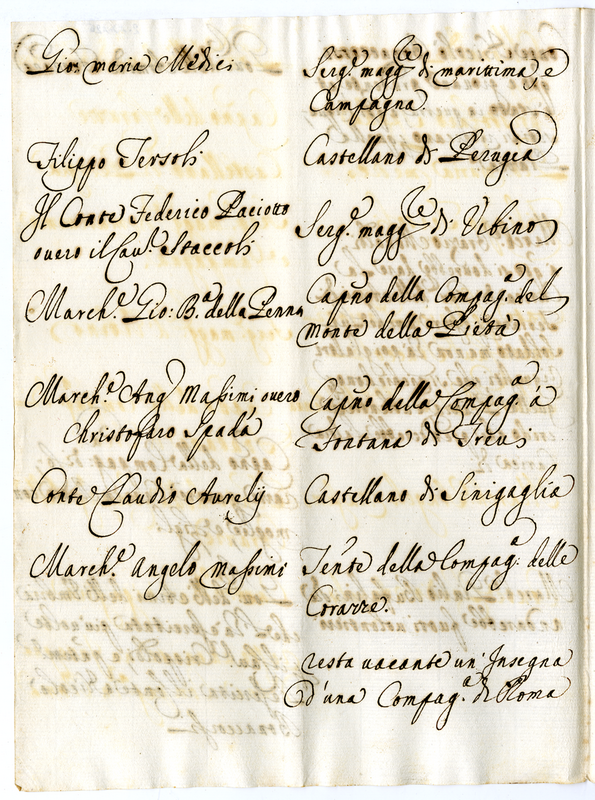 Gio: maria Medici
Serg.e magg.re di marittima, e
Campagna.
Filippo Tersoli
Castellano di Perugia
Il Conte Federico Paciotto
ouero il Cau.r Staccoli
Serg.e magg.re di Vrbino
March.e Gio: B.a della Penna
Cap.no della Compag.a del
Monte della Pietà
March.e Ang.o Massimi ouero
Christofaro Spada
Cap.no della Compag.a à
Fontana di Treui
Conte Claudio Aurelij
Castellano di Sinigaglia
March.e Angelo Massimi
Ten.te della Compag.a delle
Corazze.
resta uacante un' Insegna
d'una Compag.a di Roma